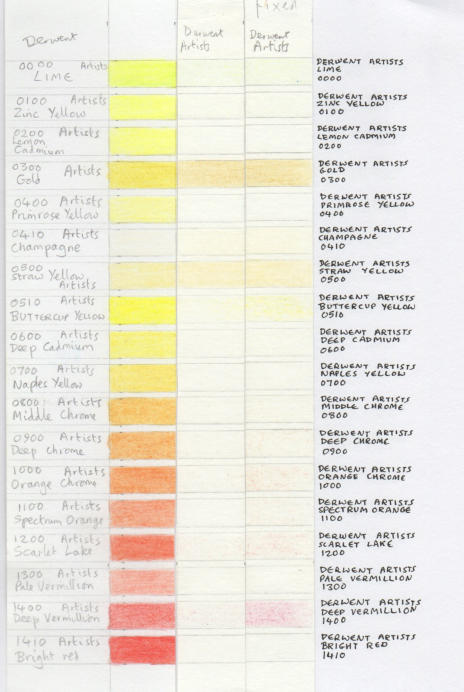 fixed
Derwent
Derwent
Artists
Derwent
Artists
0000 Artists
LIME
DERWENT ARTISTS
LIME
0000
0100 Artists
Zinc Yellow
DERWENT ARTISTS
ZINC YELLOW
0100
0200 Artists
Lemon
Cadmium
DERWENT ARTISTS
LEMON CADMIUM
0200
0300 Artists
Gold
DERWENT ARTISTS
GOLD
0300
0400 Artists
Primrose Yellow
DERWENT ARTISTS
PRIMROSE YELLOW
0400
0410 Artists
Champagne
DERWENT ARTISTS
CHAMPAGNE
0410
0500
Straw Yellow
Artists
DERWENT ARTISTS
STRAW YELLOW
0500
0510 Artists
BUTTERCUP YELLOW
DERWENT ARTISTS
BUTTERCUP YELLOW
0510
0600 Artists
Deep Cadmium
DERWENT ARTISTS
DEEP CADMIUM
0600
0700 Artists
Naples Yellow
DERWENT ARTISTS
NAPLES YELLOW
0700
0800 Artists
Middle Chrome
DERWENT ARTISTS
MIDDLE CHROME
0800
0900 Artists
Deep Chrome
DERWENT ARTISTS
DEEP CHROME
0900
1000 Artists
Orange Chrome
DERWENT ARTISTS
ORANGE CHROME
1000
1100 Artists
Spectrum Orange
DERWENT ARTISTS
SPECTRUM ORANGE
1100
1200 Artists
Scarlet Lake
DERWENT ARTISTS
SCARLET LAKE
1200
1300 Artists
Pale Vermillion
DERWENT ARTISTS
PALE VERMILLION
1300
1400 Artists
Deep Vermillion
DERWENT ARTISTS
DEEP VERMILLION
1400
1410 Artists
Bright red
DERWENT ARTISTS
BRIGHT RED
1410